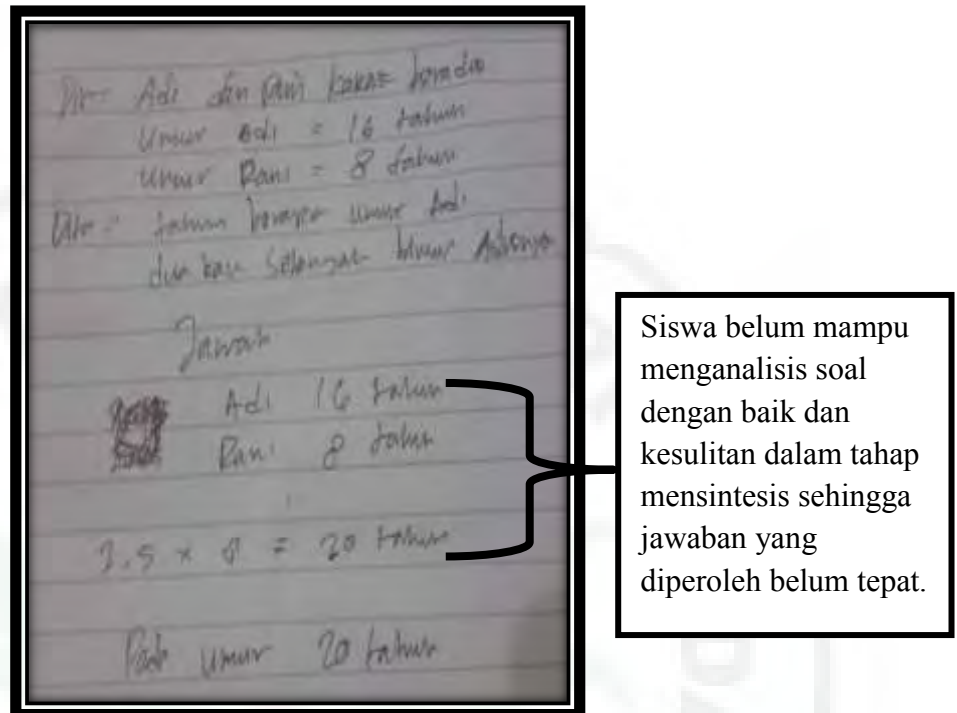 Dik = Adi dan Rani kakak beradik
Umur Adi = 16 tahun
Umur Rani = 8 tahun
Dit = tahun berapa umur Adi
dua kali setengah umur Adiknya
Jawab
Adi 16 tahun
Rani 8 tahun
2.5 x 8 = 20 tahun
Pada umur 20 tahun
Siswa belum mampu
menganalisis soal
dengan baik dan
kesulitan dalam tahap
mensintesis sehingga
jawaban yang
diperoleh belum tepat.